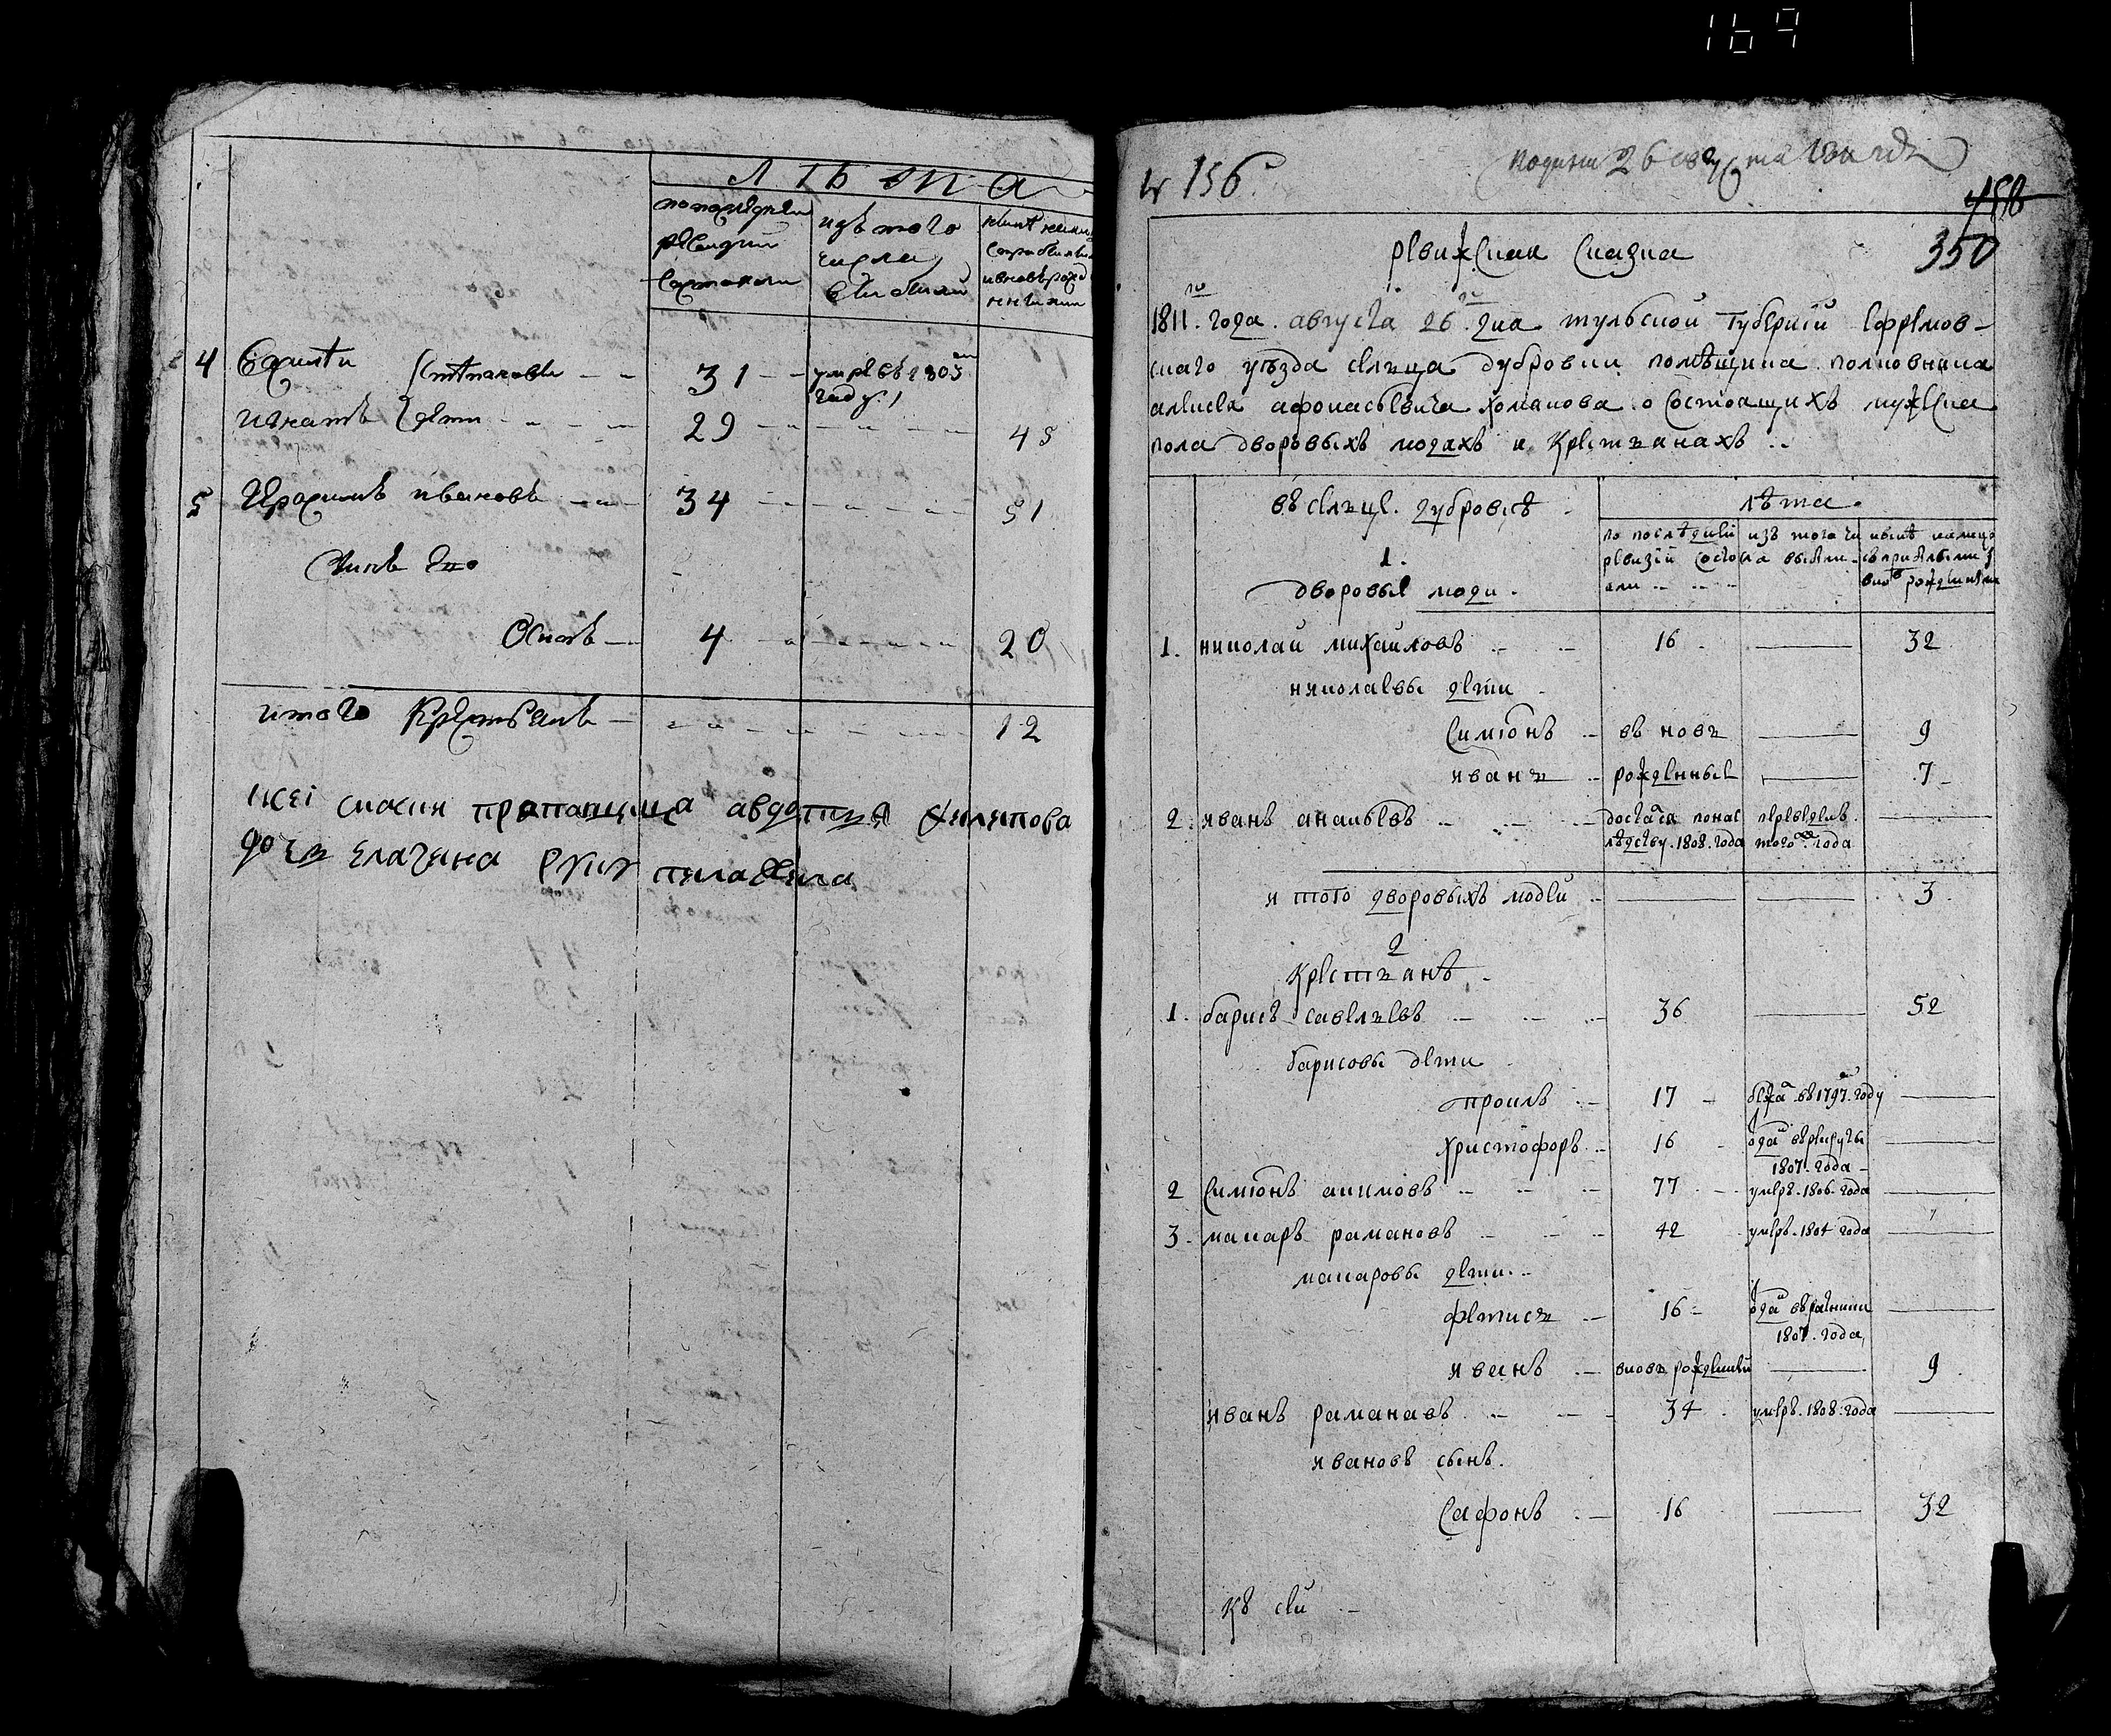 169
ЛѢТА
попоследнеи
ревизии
состояли
изъ того
числа
выбыли
4 Степановы - - 31 - - умре въ 1805
году
игнатъ дети - - - 29 - - - - - 45
5 Герасимъ ивановъ - - 34 - - - - - 51
Сынъ Его
Осипъ - 4 - - - - - 20
итого крестьянъ - - - - - - 12
Авдотья Филипова
дочь Елагина руку приложила
№ 156.
подана 26 августа 1811 года
350
ревижская сказка
1811.го года. августа 26.го дня тульской губернїи ефремов-
скаго уѣзда сельца дубровки помѣщика полковника
алексея афонасьевича хомякова о состоящихъ мужеска
пола дворовыхъ людяхъ и крестьянахъ ..
въ сельце. дубровкѣ
лѣта.
по послѣдней
ревизїи состо
яли
изъ того чи
сла выбыли
ныне налицо
съ прибылыми и
вновь рожденными
1.
дворовые люди.
1. николай михаиловъ 16 32
николаевы дети
симїонъ въ новь 9
иванъ рожденные 7
2. иванъ ананьевъ достался понас
лѣдству. 1808. года
переведенъ.
того года
и того дворовыхъ людей 3
2
крестьянъ
1. барисъ савельевъ 36 52
барисовы дети
фролъ 17 бежа въ 1797. году
христофоръ 16 отда въ рекруты
1807. года
2 симїонъ акимовъ 77 умеръ. 1806. года
3. макаръ рамановъ 42 умеръ. 1804 года
макаровы дети.
фетисъ 16 отда въ ратники
1807. года
иванъ вновь рожденный 9
иванъ рамановъ 34 умеръ. 1808. года
ивановъ сынъ.
сафонъ 16 32
къ сей